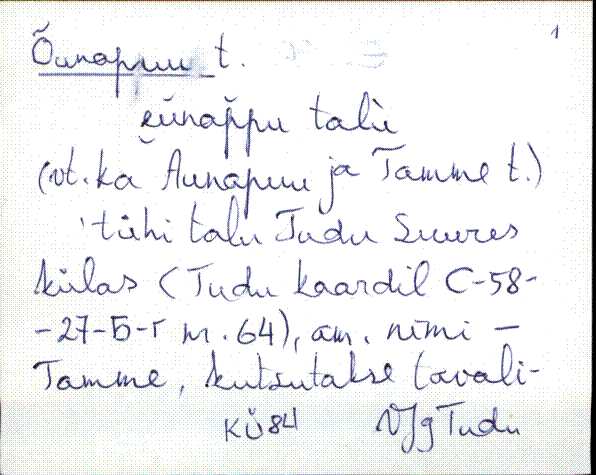 1
Õunapuu t.
ĕŭnap̆pu talù
(vt. ka Äunapuu ja Tamme t.)
'tühi talu Tudu Suures
külas (Tudu kaardil C-58-
-27-Б-г nr. 64), am. nimi –
Tamme, kutsutakse tavali-
KÜ84 VJg Tudu